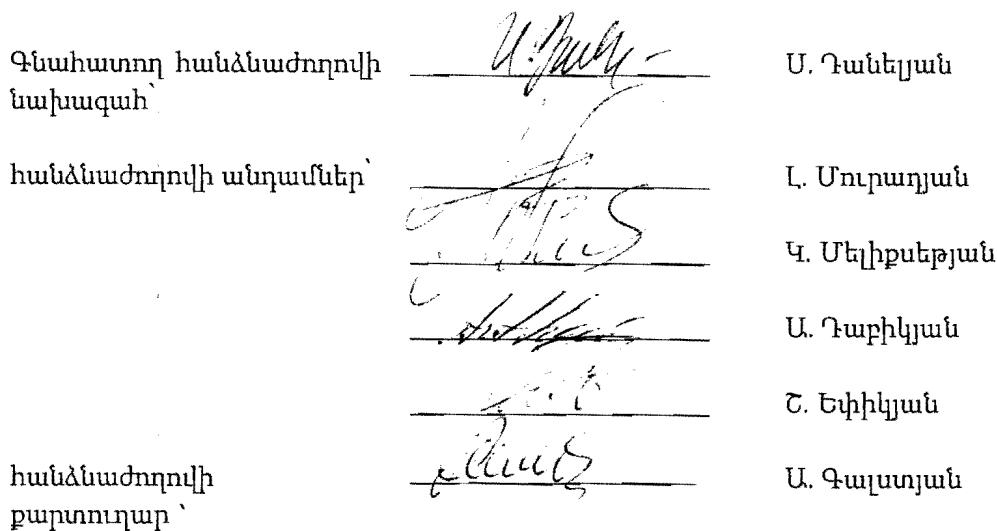 Գնահատող հանձնաժողովի
նախագահ՝
Ս. Դանելյան
հանձնաժողովի անդամներ՝
Լ. Մուրադյան
Կ. Մելիքսեթյան
Ա. Դաբիկյան
Շ. Եփիկյան
հանձնաժողովի
քարտուղար ՝
Ա. Գալստյան